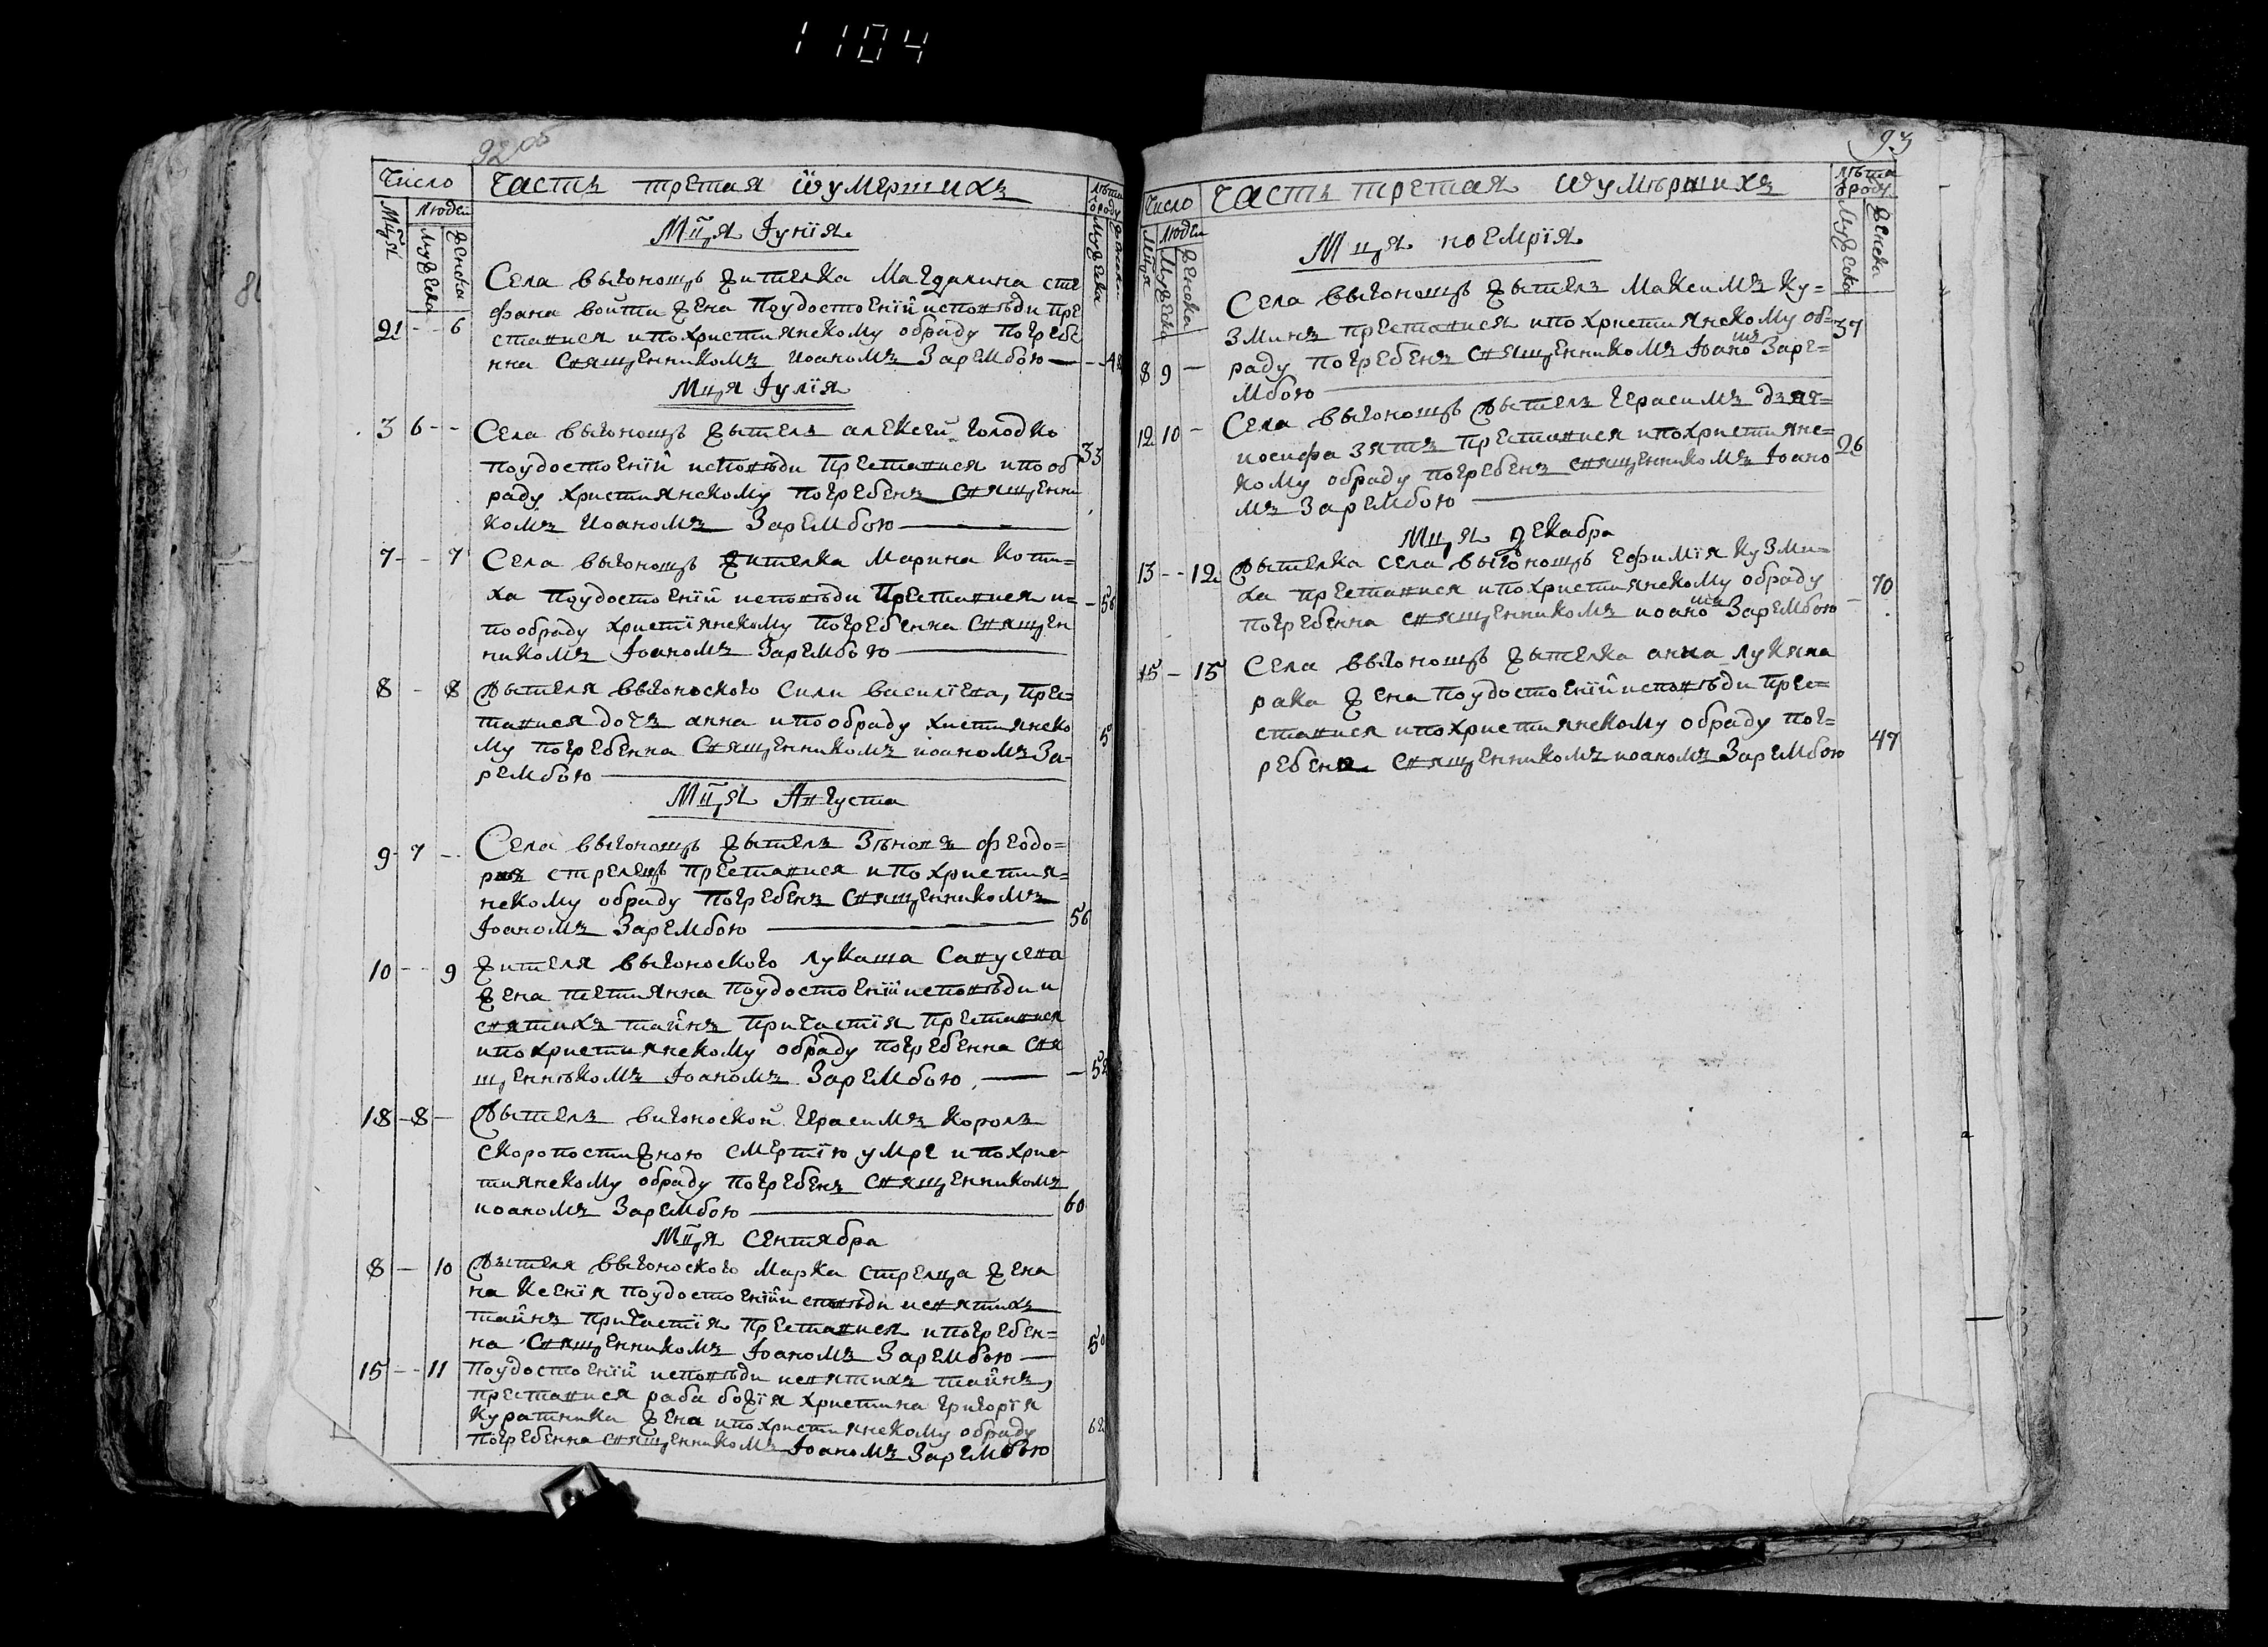 1104
92 об
Число
Часть третая ѿ умершихъ
Лѣта ѿроду
Мцⷭ҇я
Людей
Мужеска
Женска
Мужеска
Женска
Мцⷭ҇я Іунїя
Села выгонощъ жителка Магдалина сте
фана войта жена поудостоенїи исповѣди пре
21 - - 6 ставися ипохристиянскому обраду погребе
нна священникомъ иоаномъ Зарембою - 48
Мцⷭ҇я Іулїя
3 6 - - Села выгонощъ жытель алексей голодко
поудостоенїи исповѣди преставися ипооб 33
раду християнскому погребенъ священни
комъ Иоаномъ Зарембою
7 - - 7 Села выгонощъ жителка Марина коти-
ха поудостоенїи исповѣди преставися и= - 56
пообраду христїянскому погребенна священ
никомъ Іоаномъ Зарембою
8 - 8 Жытеля выгоноского Сили василїева, прес=
тавися дочъ анна ипообраду хистиянско
му погребенна священникомъ иоаномъ За- 5
рембою
Мцⷭ҇я Августа
9 - 7 - Села выгонощъ жытель Зѣновъ феодо=
ровъ стрелецъ преставися ипохристия=
нскому обраду погребенъ священникомъ
Іоаномъ Зарембою 56
10 - - 9 Жителя выгоноского лукаша Савусева
жена тетиянна поудостоенїи исповѣди и
святихъ тайнъ причастїя преставися
ипохристиянскому обраду погребенна свя
щеннѣкомъ Іоаномъ Зарембою, - 52
18 - 8 - Жытель вигоноской герасимъ король
скоропостижною смертїю умре ипохрис
тиянскому обраду погребенъ священникомъ
иоаномъ Зарембою 60
Мцⷭ҇я Сентября
8 - 10 Жытеля выгоноского Марка стрелца жена
на ксенїя поудостоенїи споведи исвятихъ
тайнъ причастїя преставися ипогребен=
на священникомъ Іоаномъ Зарембою - 50
15 - - 11 Поудостоенїи исповѣди исвятихъ тайнъ,
преставися раба божїя христина григорїя
Куратника жена ипохристиянскому обраду 62
погребенна священникомъ Іоаномъ Зарембою
93
Число
Часть третая ѿ умѣршихъ
Лѣта ѿроду
Мцⷭ҇я
Людей
Мужеска
Женска
Мужеска
Женска
Мцⷭ҇я ноемрїя
Села выгонощъ жытель Максимъ Ку=
зминъ преставися ипохристиянскому об= 37
8 9 - раду погребенъ священникомъ Іоаномъ Заре=
мбою
Села выгонощъ жытель герасимъ
12 10 - иосифа зять преставися ипохристиянс= 26
кому обраду погребенъ священникомъ Іоано
мъ Зарембою
Мцⷭ҇я декабра
13 - - 12 Жытелка села выгонощъ ефимїя кузми=
ха преставися ипохристиянскому обраду - 70
погребенна священникомъ иоаномъ Зарембою
15 - 15 Села выгонощъ жытелка анна лукяна
рака жена поудостоенїи исповѣди прес=
ставися ипохристиянскому обраду пог=
ребена священникомъ иоаномъ Зарембою 47